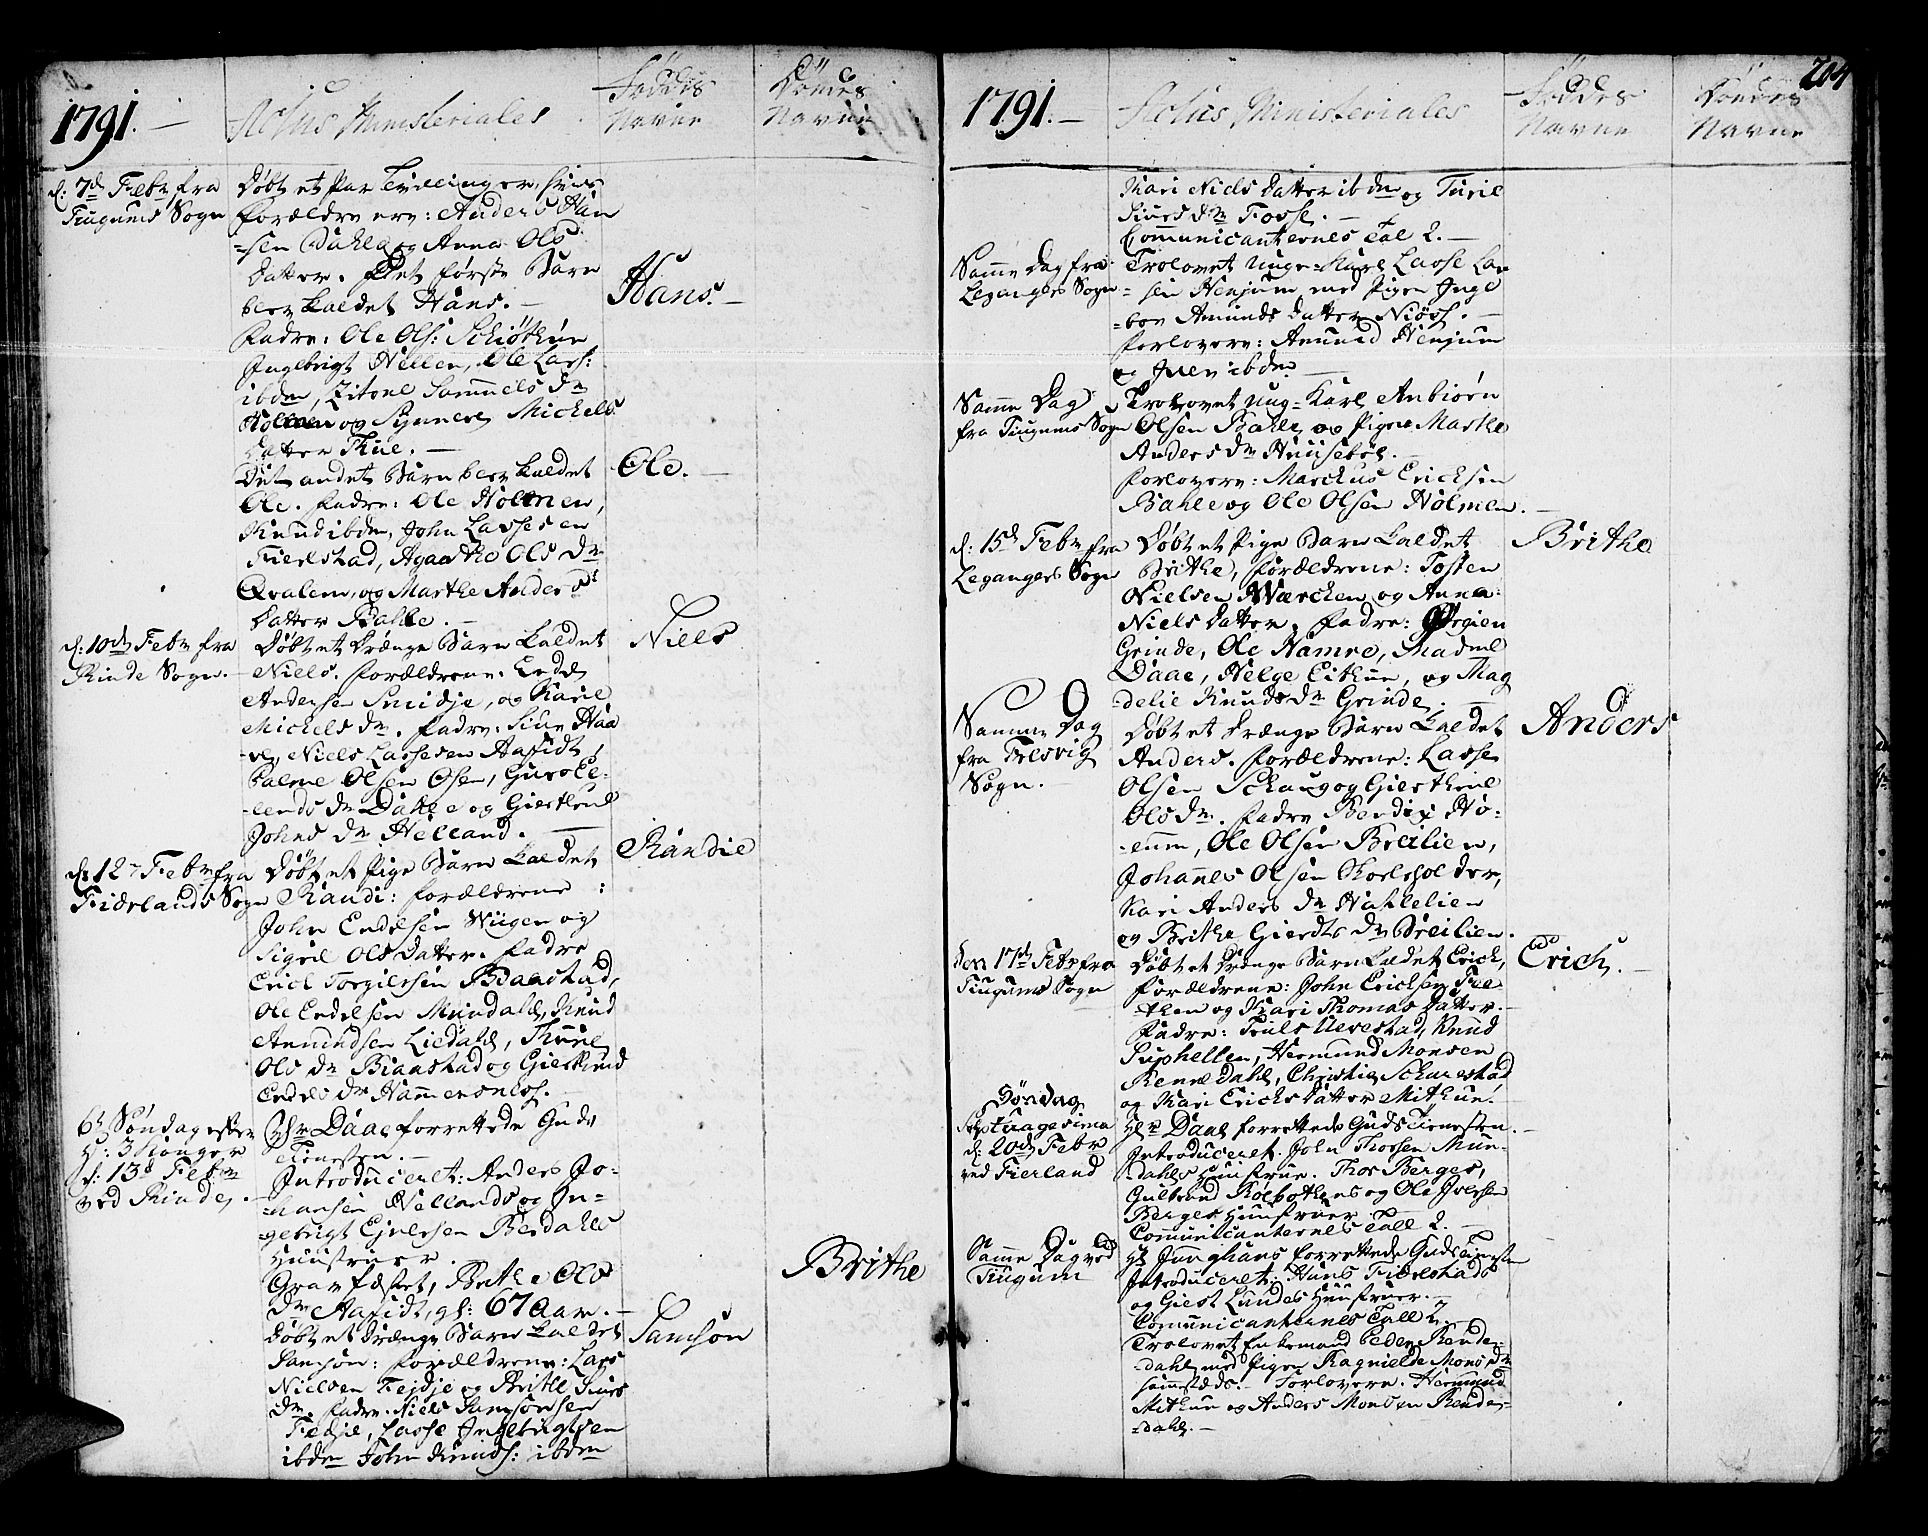 1791.
Actus Ministeriales
Føddes
Navne
Dödes
Navne
d: 7d Febr fra
Tiugums Sogn
Døbt et Par Tvillinger, hvis
Forældre ere: Anders Han
=sen Dahle og Anna Ols
Datter. Det første Barn
blev kaldet Hans.
Hans.
Fadre: Ole Ols: Schiöthun
Ingebrigt Nellen, Ole Lars:
ibdm, Zitsel Sammels Dr
Holmen og Synneve Michels
Datter Thue.
Det andet Barn blev kaldet
Ole.
Ole. Fadre: Ole Holmen,
Knud ibdm, John Lassesen
Fierlstad, Agaathe Ols Dr
Qvalem, og Marthe Anders
Datter Bahle.
d: 10d Febr fra
Rinde Sogn.
Døbt et Drænge Barn kaldet
Niels
Niels. Forældrene: Endre
Andersen Smidje, og Karie
Michels Dr. Fadre: Siur Haa
=ve, Niels Lassesen Aafidt,
Palme Olsen Osen, Guro Er=
=lends Dr Dahle og Gierthrud
Johns Dr Helland.
d: 12 Febr fra
Fiærlands Sogn
Døbt et Pige Barn kaldet
Randie
Randi: Forældrene:
John Endresen Wiigen og
Sigrid Olsdatter. Fadre
Erich Torgiersen Baastad,
Ole Endresen Mundahl, Knud
Amundsen Liedahl, Thurie
Ols Dr Biaastad og Gierthrud
Endres Dr Hammersnes.
6te Søndag efter
H: 3 Konger
d: 13d Febr
ved Rinde.
Hr Daae forrettede Guds
Tienesten.
Introduceret: Anders Jo=
=hansen Nellands og In=
gebrigt Ejversen Berdahls
Huustruer.
Gravfæstet, Brithe Ols
Brithe
Dr Aafidt, gl: 67 Aar.
Døbt et Drænge Barn kaldet
Samson
Samson: Forældrene: Lars
Nielsen Fejdje og Brithe Siurs
Dr. Fadre: Niels Samsonsen
Fedje, Lasse Ingebrigtsen
ibdm John Knuds: ibdm
1791.
Actus Ministeriales
Föddes
Navne
Döedes
Navne
204
Kari Niels Datter ibdm og Turil
Siurs Dr Fosse.
Communicanternes Tal 2.
Samme Dag fra
Leganger Sogn
Trolovet Unge=Karl Lasse Lar
=sen Henjum med Pigen Inge
=bor Amunds Datter Niøss.
Forlovere: Amund Henjum
og Iver ibdm
Samme Dag
fra Tiugums Sogn
Trolovet Ung=Karl Anbiørn
Olsen Bahle og Pigen Marthe
Anders Dr Huusebøe.
Forlovere: Marchus Erichsen
Bahle og Ole Olsen Holmen.
d: 15d Febr fra
Legangers Sogn
Døbt et Pige Barn kaldet
Brithe
Brithe, Forældrene: Tosten
Nielsen Wærchen og Anna
Niels Datter. Fadre: Ørgien
Grinde, Ole Hamre, Madme
Daae, Helge Eithun, og Mag
=delie Knuds Dr Grinde.
Samme Dag
fra Fresvig
Sogn.
Døbt et Drænge Barn kaldet
Anders
Anders. Forældrene: Lasse
Olsen Schaug og Gierthrud
Ols Dr. Fadre Bendix Hø=
=eum, Ole Olsen Breilien,
Johannes Olsen
Kari Anders Dr Nahlelien
og Brithe Gierdts Dr Breilien.
Den 17d Febr fra
Tiugums Sogn
Døbt et Drænge Barn kaldet Erich,
Erich.
Forældrene: John Erichsen Fie
=then og Kari Thomas Datter.
Fadre: Truls Uvestad, Knud
Suphellen, Hermund Monsen
Renne Dahl, Christie Scharestad
og Kari Erichs Datter Mithun.
Søndag
Septuagesima
d: 20d Febr
ved Fierland
Hr Daae forrettede Gudstienesten.
Introduceret. John Thorsen Mun=
=dahls Huustrue. Thor Berges,
Gulbrand Bøebothens og Ole Iversen
Berges Huustruer.
Communicanternes Tall 2.
Samme Dag ved
Tiugum
Hr Junghans forrettede Gudstienesten
Introduceret: Hans Fierlstads
og Giest Lundes Huustruer.
Communicanternes Tall 7.
Trolovet Enkemand Peder Rende=
=dahl med Pigen Ragnilde Mons Dr
sammesteds. Forlovere. Hermund
Mithun og Anders Monsen Rende=
=dahl.